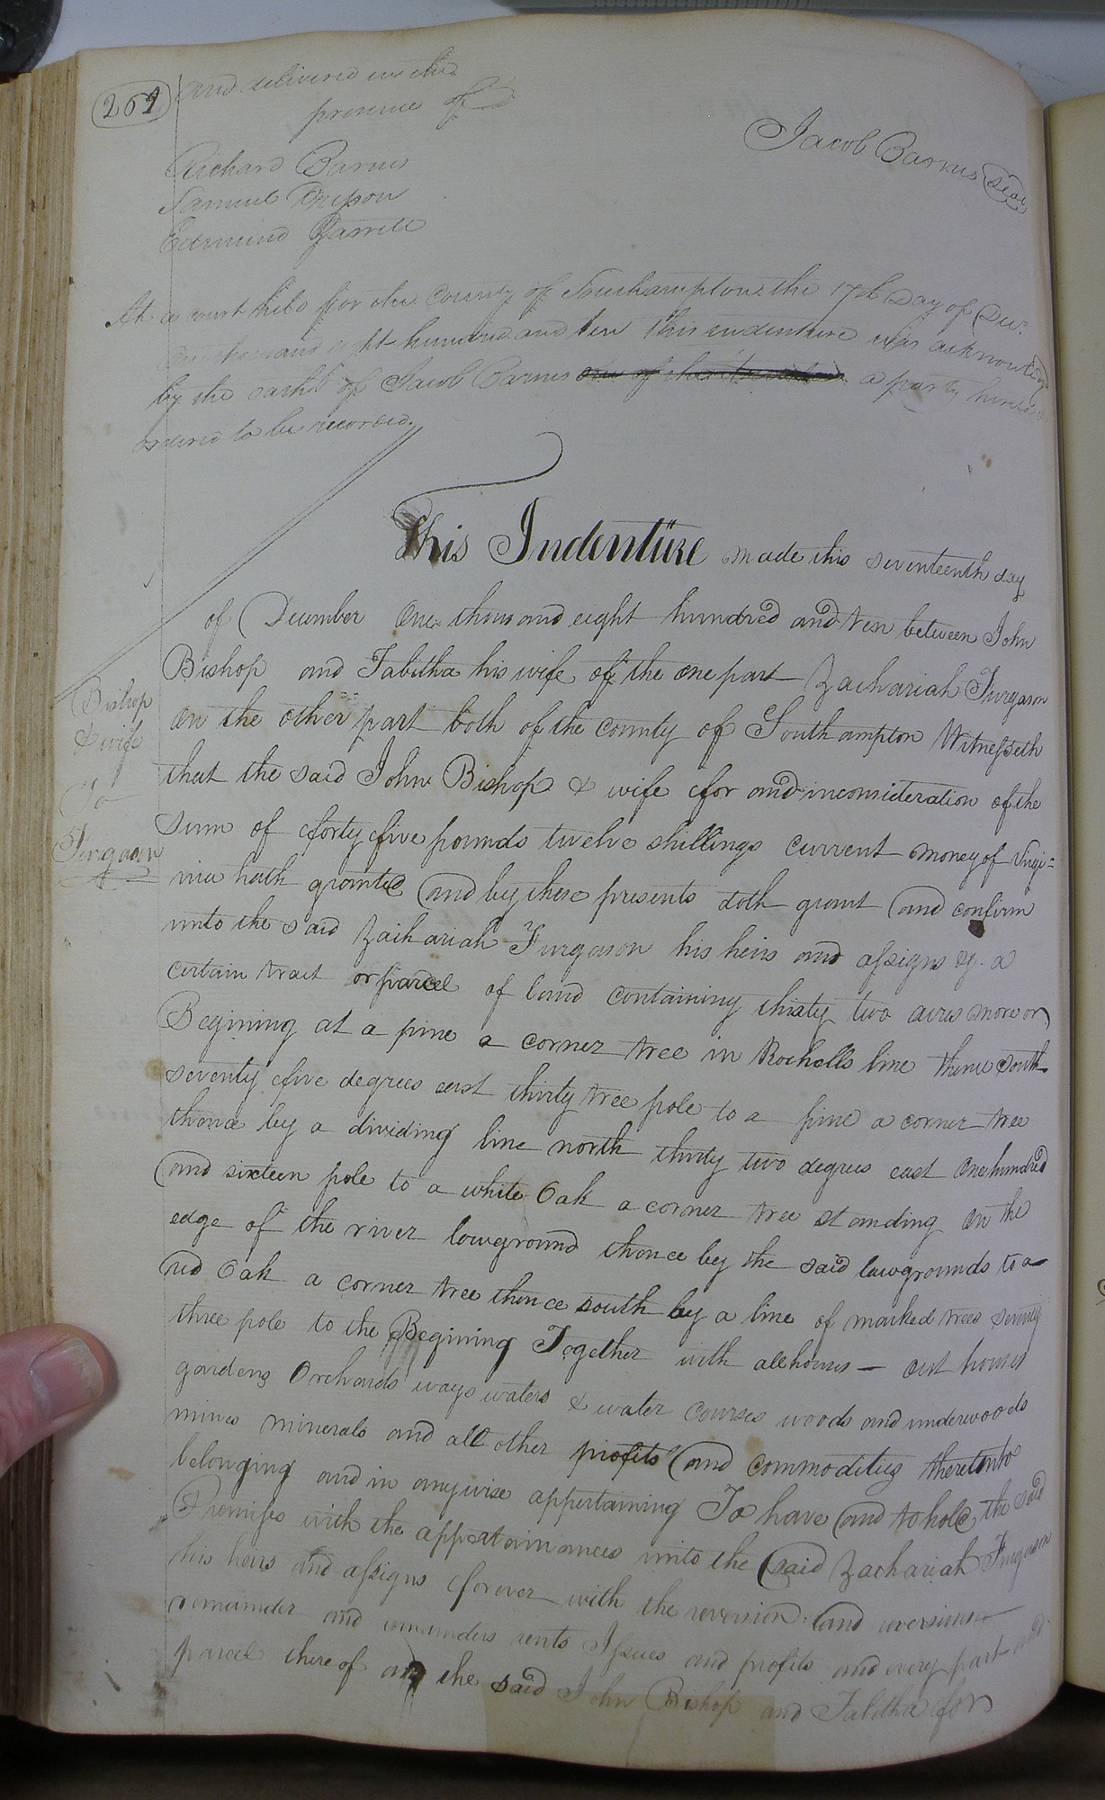 261
and delivered in the
presence of
Jacob Barnes Seal
Richard Barnes
Samuel
Edmund Barrett
At a court held for the County of Southampton the 17th Day of Decr.
One thousand eight hundred and ten This indenture was acknowledged
by the oath of Jacob Barnes a party hereto
ordered to be recorded.
This Indenture made this seventeenth day
of December One thousand eight hundred and ten between John
Bishop and Tabitha his wife of the one part Zachariah Furgason
on the other part both of the county of Southampton Witnesseth
that the said John Bishop & wife for and inconsideration of the
Sum of forty five pounds twelve shillings current money of Virgi=
nia hath granted and by these presents doth grant and confirm
unto the said Zachariah Furgason his heirs and assigns a
certain tract or parcel of land containing thirty two acres more or
Begining at a pine a corner tree in Rochells line thence South
seventy five degrees east thirty tree pole to a pine a corner tree
thence by a dividing line north thirty two degrees east One hundred
and sixteen pole to a white Oak a corner tree standing on the
edge of the river lowground thence by the said lowgrounds to a
red Oak a corner tree thence south by a line of marked trees seventy
three pole to the Begining Together with all houses — out houses
gardens Orchards ways waters & water courses woods and underwoods
mines minerals and all other profits and commodities thereunto
belonging and in anywise appertaining To have and to hold the said
Premises with the appertainances unto the said Zachariah Furgason
his heirs and assigns forever with the reversion and reversions
remainder and remainders rents Issues and profits and every part and
parcel there of and the said John Bishop and Tabitha for
Bishop
& wife
To
Furgason